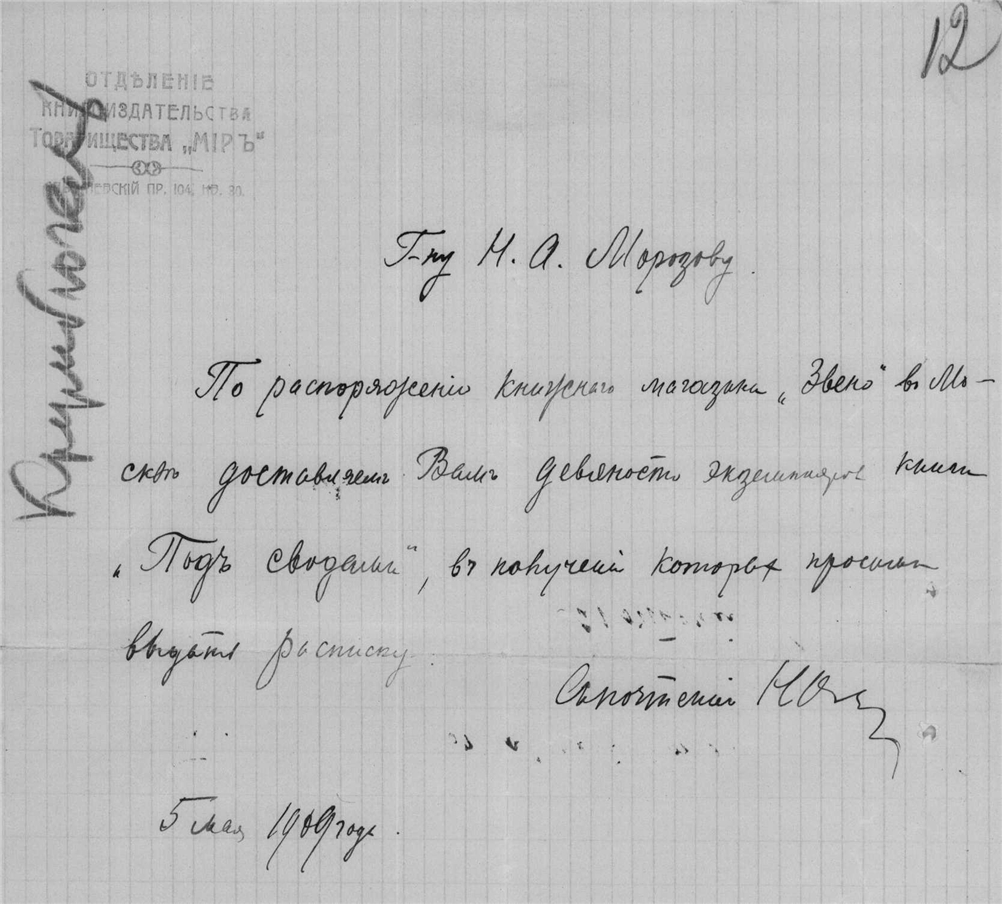 12
ОТДѢЛЕНІЕ
КНИГОИЗДАТЕЛЬСТВА
ТОВАРИЩЕСТВА „МІРЪ“
НЕВСКІЙ ПР. 104, КВ. 30.
Г-ну Н. А. Морозову.
По распоряженію книжнаго магазина „Звено“ въ Мо-
сквѣ доставляемъ Вамъ девяносто экземпляров книги
„Подъ сводами“, въ полученіи которых просимъ
выдать расписку.
5 мая 1909 года.